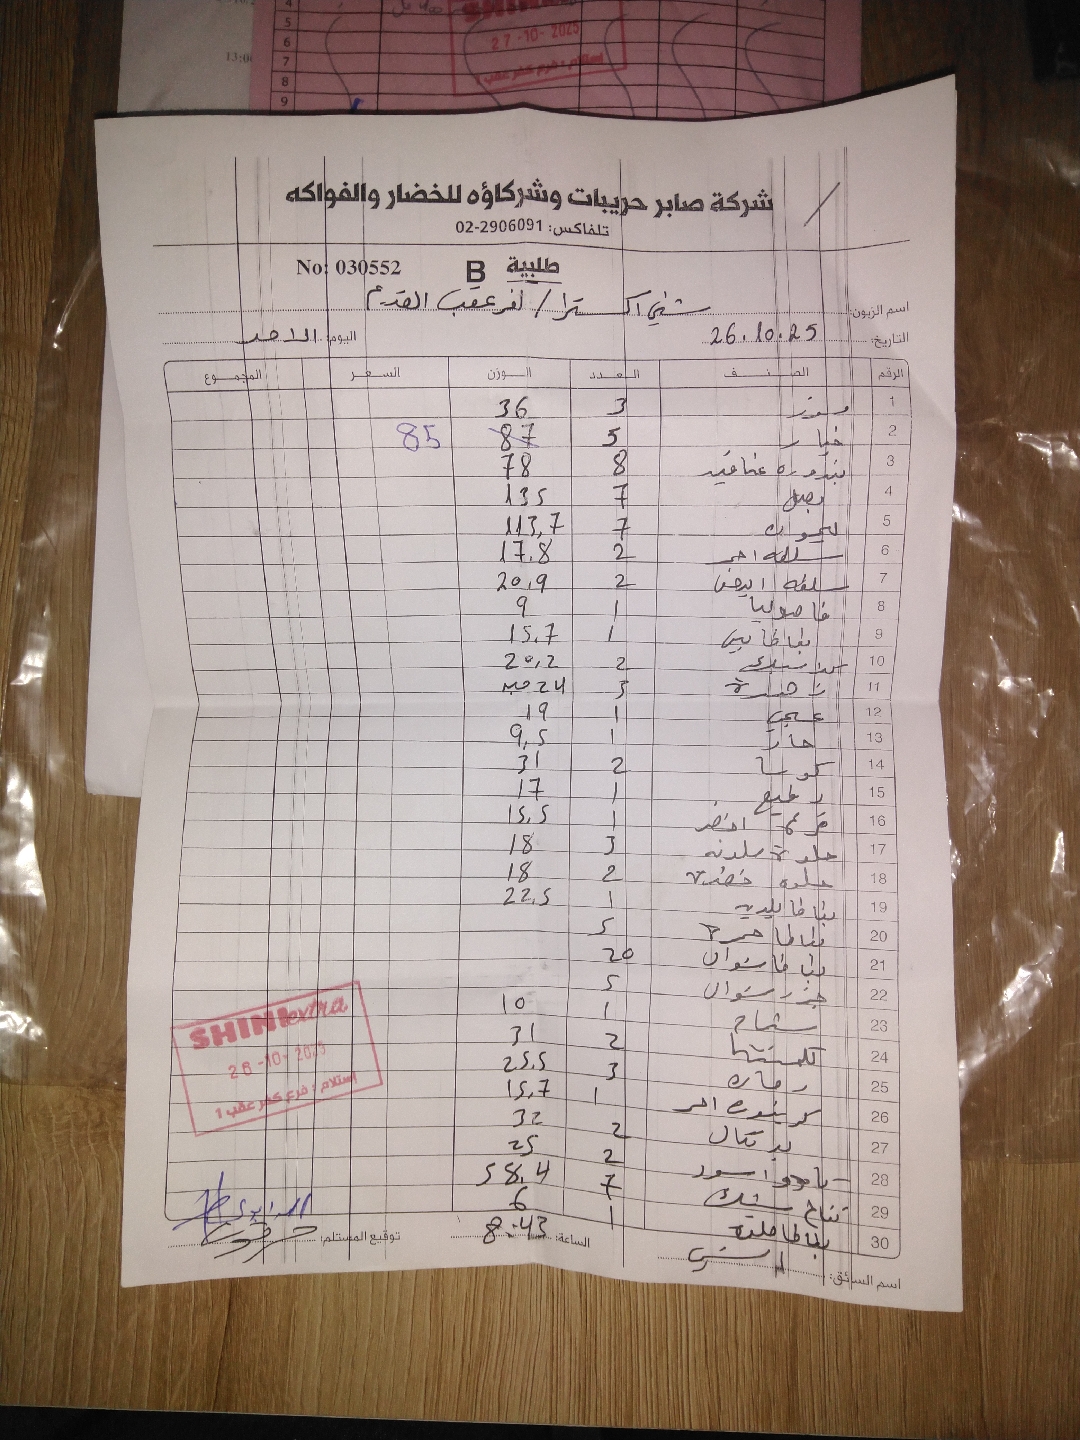 4
5
6
7
8
9
SHINI
27-10-2025
استلام : فرع كفر عقب
13:0
شركة صابر حريبات وشركاؤه للخضار والفواكه
تلفاكس: 02-2906091
No: 030552 B طلبية
اسم الزبون: شني اكسترا / لفرعقب القديم
التاريخ: 26.10.25 اليوم: الاحد
الرقم الصنف العدد الوزن السعر المجموع
1 موز 3 36
2 خيار 5 87 85
3 بندوره عناقيد 8 78
4 بصل 7 135
5 ليمون 7 113,7
6 احمر 2 17.8
7 ابيض 2 20,9
8 فاصوليا 1 9
9 بطاطا بيبي 1 15,7
10 2 20,2
11 زهرة 3 24 حبه
12 عجمي 1 19
13 حار 1 9,5
14 كوسا 2 31
15 1 17
16 اخضر 1 15,5
17 حلوة ملونه 3 18
18 حلوه خضره 2 18
19 بطاطا 1 22,5
20 بطاطا حمره 5
21 بطاطا شوال 20
22 جزر شوال 5
23 شمام 1 10
24 كلمنتينا 2 31
25 3 25,5
26 احمر 1 15,7
27 برتقال 2 32
28 اسود 2 25
29 تفاح 7 58,4
30 بطاطا حلوه 1 6
اسم السائق: اشرف الساعة: 8:43 توقيع المستلم:
SHINI extra
28-10-2025
استلام : فرع كفر عقب 1